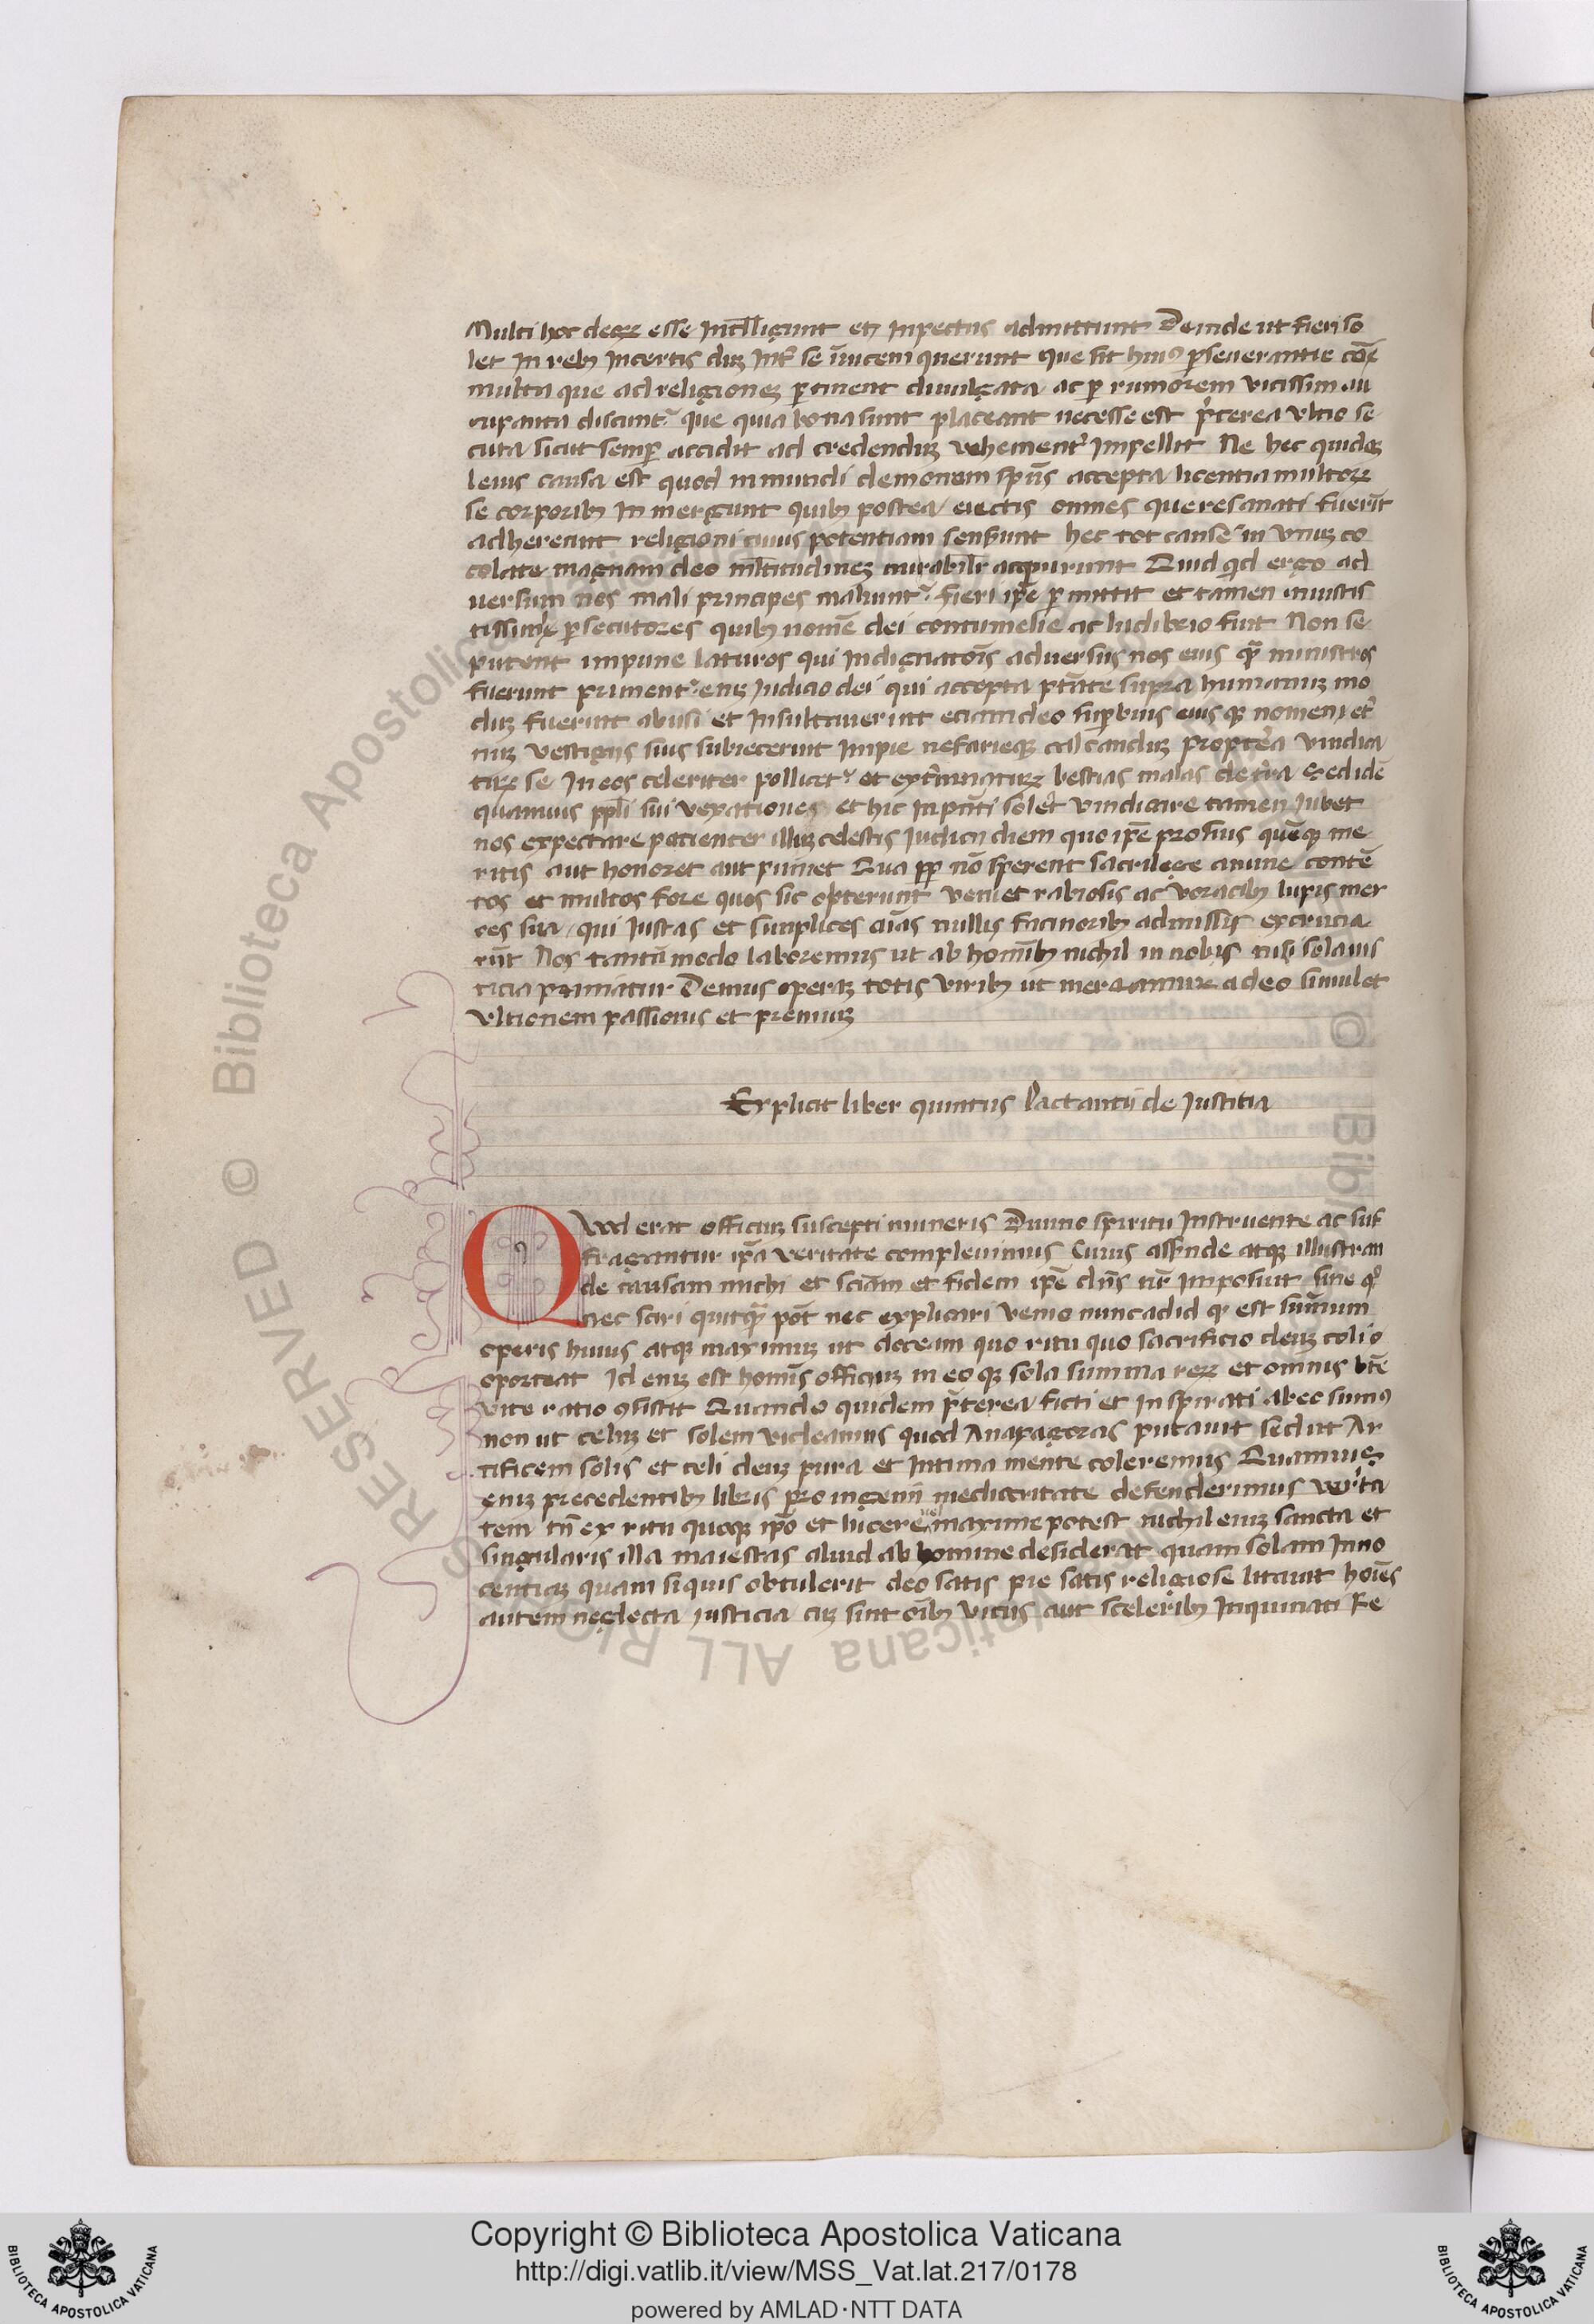 Multi hoc deoꝝ esse Intellıgunt etı Inpectus admittunt Deinde ut fieri so
let In rebꝫ Incertis duꝫ Int̃ se ı̃uicem querunt que sit huiꝰ ꝑseuerantie cõı
multa que ad religioneꝫ ꝑtinent diuulgata ac ꝑ rumorem vicissim au
cupantia discunt̃ que quia bona sunt placeant necesse est p̃terea vltio se
cuta sicut semꝑ accidit ad credenduꝫ vehement̃ Impellit Ne hec quideꝫ
leuis causa est quod inmundi demonum sp̃ũs accepta licentia multoꝝ
se corporibꝫ In mergunt quibꝫ postea eiectis omnes que resanati fuerı̃t
adhereant religioni cuius potentiam senserunt hec tot cause in vnuꝫ co
colate magnam deo ml̃titudineꝫ mirabilr̃ acquirunt Quid quid ergo ad
uersum nos mali principes moliunt̃ fieri ip̃e ꝑmittit et tamen iniustis
tissimi ꝑsecutores quibꝫ nomẽ dei contumelie ac ludibrio fiut Non se
putent impune laturos qui Indignatõis aduersus nos eius q̃ ministros
fuerunt punient̃ enꝫ Iudicio dei qui accepta ptãte supra humanuꝫ mo
duꝫ fuerint abusi et Insultauerint etiam deo suꝑbius eius qꝫ nomen et̃
nuꝫ vestigijs suis subiecerint Impie nefarieqꝫ calcanduꝫ propterea vindica
tuꝝ se In eos celeriter pollicet̃ et ext̃minatuꝝ bestias malas de t̃ra Sed idẽ
quamuis pp̃li sui vexationes et hic in p̃nti solet vindicare tamen Iubet
nos expectare patienter illuꝫ celestis Iudicij diem quo ip̃e pro suis quẽqꝫ me
ritis aut honoret aut puniet Qua pp̃ nõ sperent sacrilege anime contẽ
tos et multos fore quos sic opterunt veniet rabiosis ac voracibꝫ lupis mer
ces sua qui Iustas et simplices aı̃as nullis facinoribꝫ admissis excrucia
rũt Nos tantũ modo laboremus ut ab hominibꝫ nichil in nobis nisi sola ius
ticia puniatur Demus operaꝫ totis viribꝫ ut mereamur a deo simul et
vltionem passionis et premiuꝫ
Explicit liber quintus Lactantij de Iustitia
Qvod erat officiuꝫ suscepti muneris Diuino spiritu Instruente ac suf
fragantur ip̃a veritate compleuimus Cuius asserende atqꝫ illustran
de causam michi et sciam et fidem ip̃e dñs nr̃ Imposuit sine q̊
nec sciri quicq̃ pot̃ nec explicari venio nunc ad id qꝫ est sum̃um
operis huius atqꝫ maximuꝫ ut doceam quo ritu quo sacrificio deuꝫ coli o
oporteat Id enꝫ est hominis officiuꝫ in eo qꝫ sola summa reꝝ et omnis btẽ
vite ratio ꝯsistit Quando quidem p̃terea ficti et Inspirati ab eo sumꝰ
non ut celuꝫ et solem videamus quod Anaxagoras putauit sed ut Ar
tificem solis et celi deuꝫ pura et Intima mente coleremus Quamuis
enꝫ precedentibꝫ libris pro ingenij mediocritate defenderimus verita
tem tñ ex ritu quoqꝫ ip̃o et lucere uel maxime potest nichil enꝫ sancta et
singularis illa maiestas aliud ab homine desiderat quam solam Inno
centiaꝫ quam siquis obtulerit deo satis pie satis religiose litauit hoı̃es
autem neglecta Iusticia cuꝫ sint oı̃bꝫ vitijs aut sceleribꝫ Inquinati Re
Copyright © Biblioteca Apostolica Vaticana
http://digi.vatlib.it/view/MSS_Vat.lat.217/0178
powered by AMLAD·NTT DATA